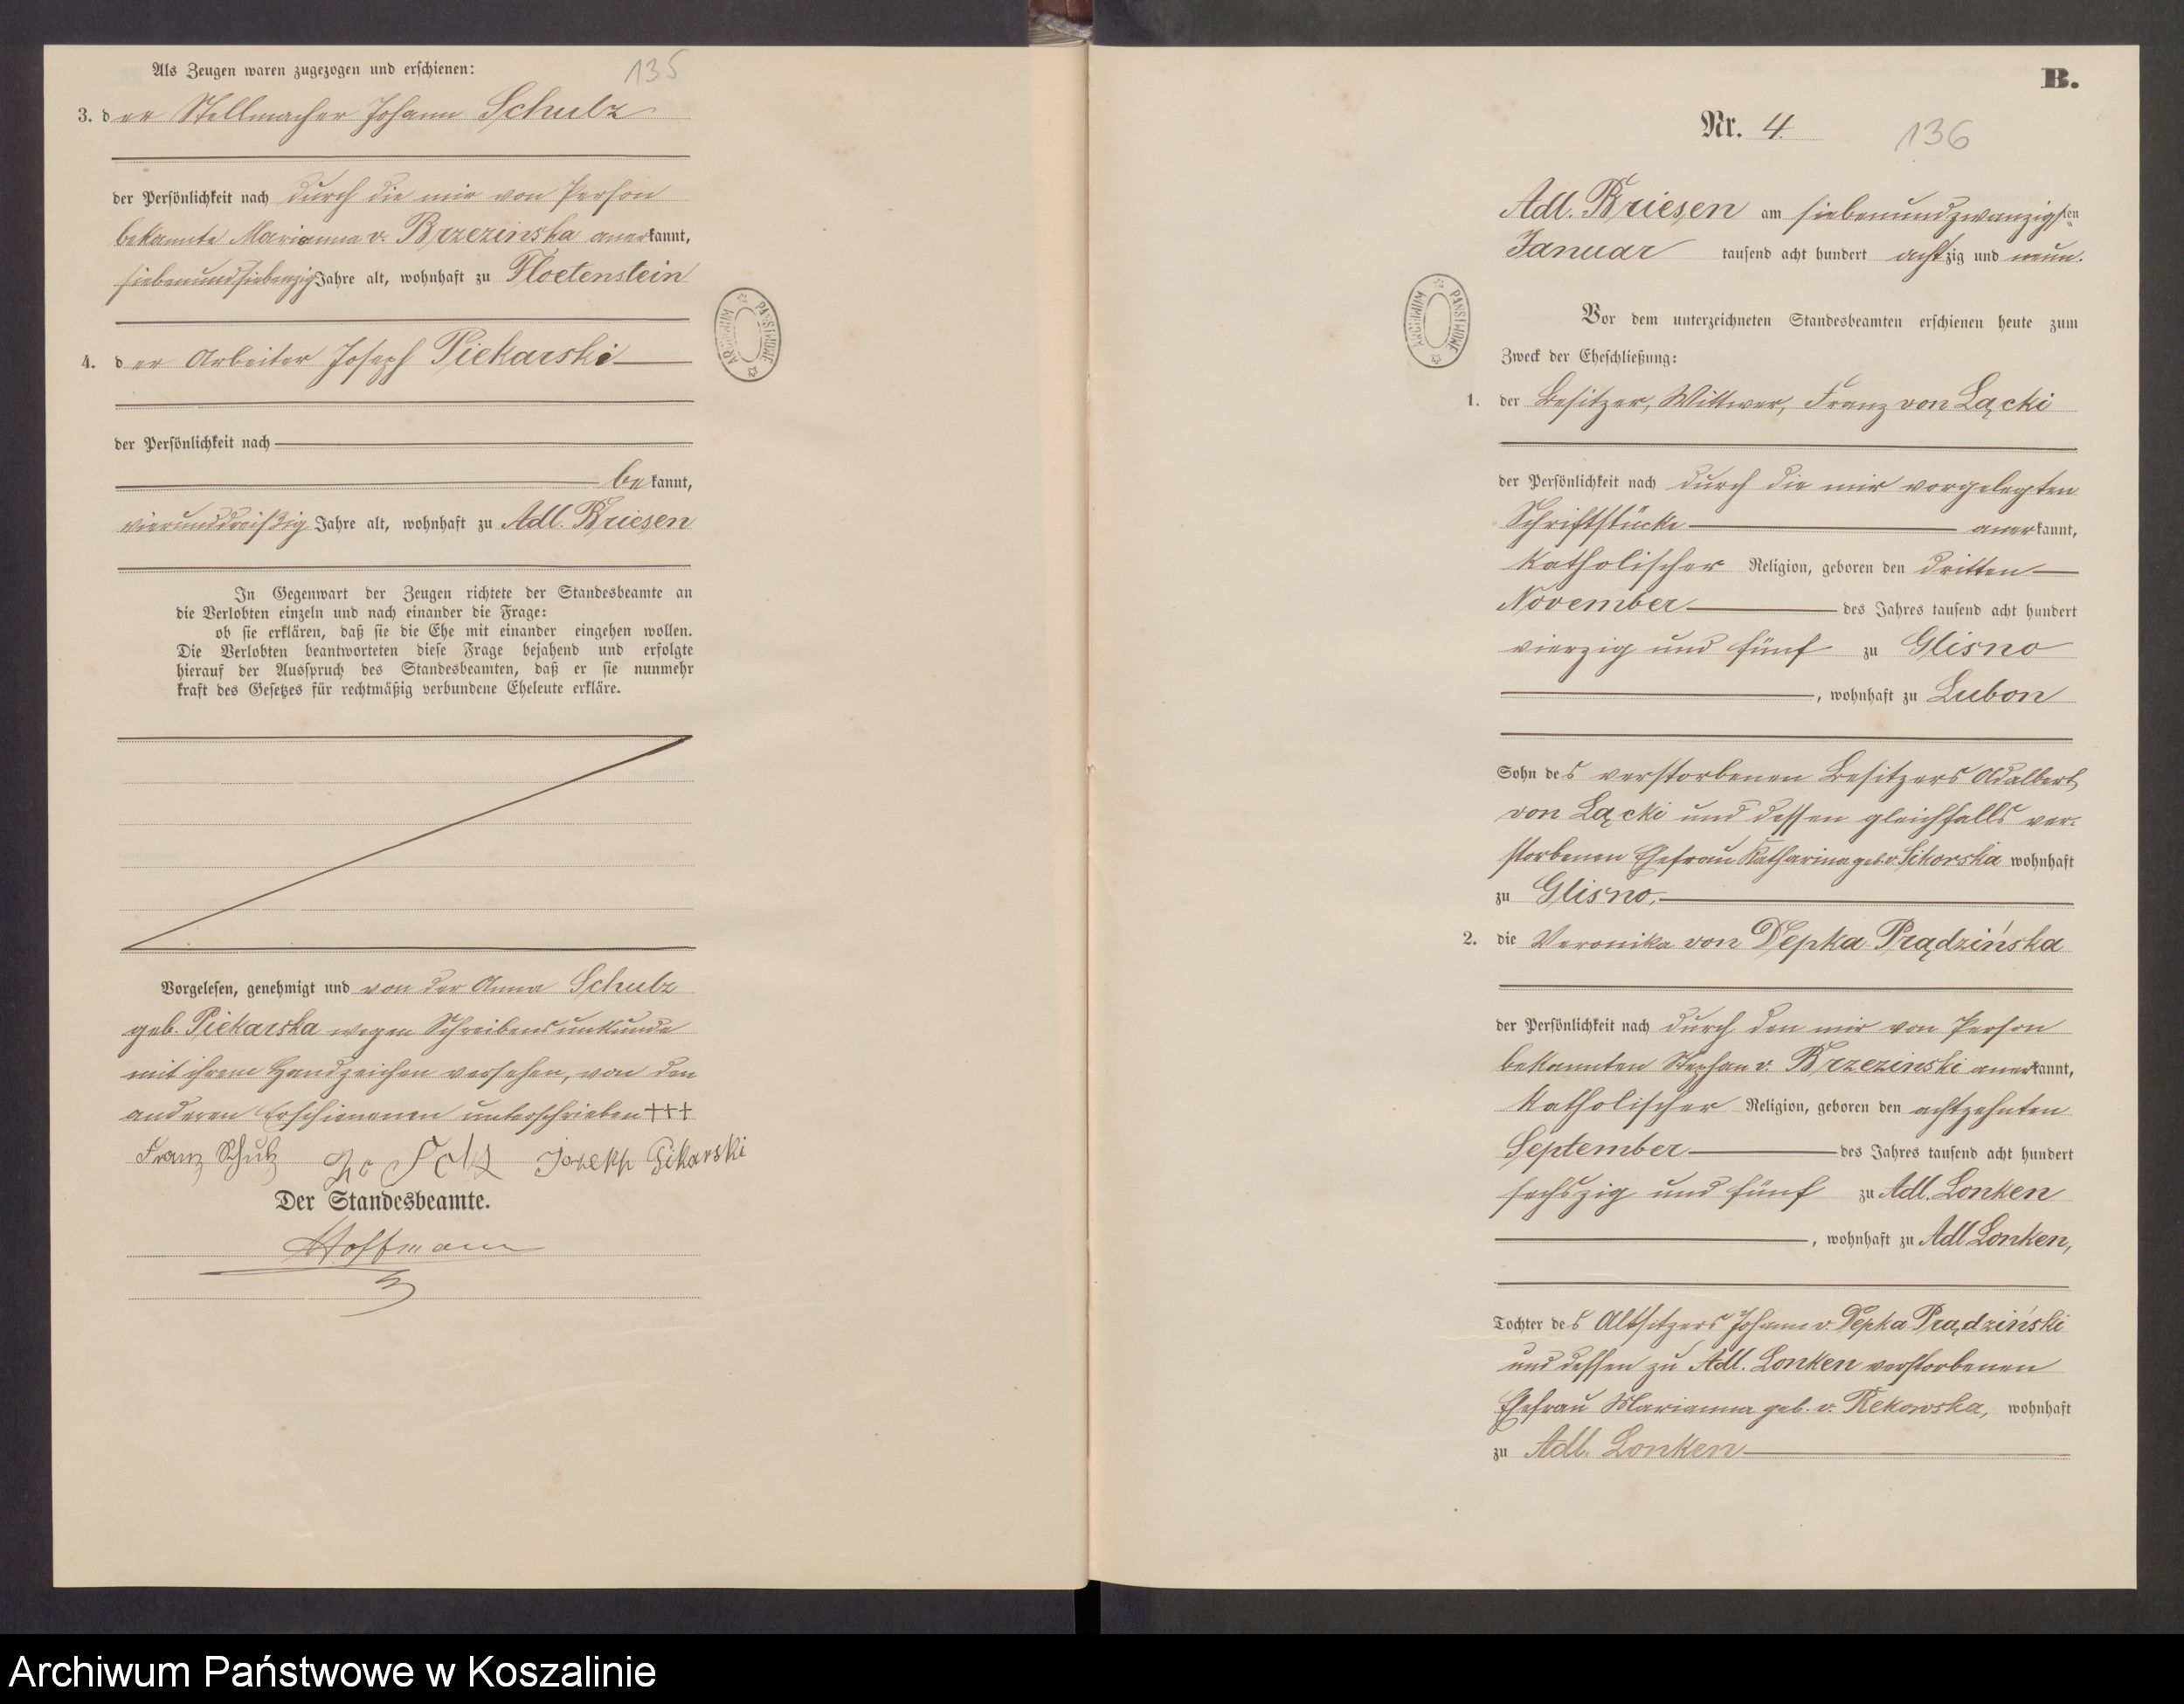 Als Zeugen waren zugezogen und erschienen:
135
3. der Stellmacher Johann Schulz
der Persönlichkeit nach durch die mir von Person
bekannte Marianna v. Brzezinska anerkannt,
siebenundsiebenzig Jahre alt, wohnhaft zu Floetenstein
4. der Arbeiter Joseph Piekarski
der Persönlichkeit nach
bekannt,
vierunddreißig Jahre alt, wohnhaft zu Adl. Briesen
In Gegenwart der Zeugen richtete der Standesbeamte an
die Verlobten einzeln und nach einander die Frage:
ob sie erklären, daß sie die Ehe mit einander eingehen wollen.
Die Verlobten beantworteten diese Frage bejahend und erfolgte
hierauf der Ausspruch des Standesbeamten, daß er sie nunmehr
kraft des Gesetzes für rechtmäßig verbundene Eheleute erkläre.
Vorgelesen, genehmigt und von der Anna Schulz
geb. Piekarska wegen Schreibensunkunde
mit ihrem Handzeichen versehen, von den
anderen Erschienenen unterschrieben +++
Franz Schulz Joseph Pikarski
Der Standesbeamte.
Hoffmann
ARCHIWUM PAŃSTWOWE
B.
Nr. 4.
136
Adl. Briesen am siebenundzwanzigsten
Januar tausend acht hundert achtzig und neun.
ARCHIWUM PAŃSTWOWE
Vor dem unterzeichneten Standesbeamten erschienen heute zum
Zweck der Eheschließung:
1. der Besitzer, Wittwer, Franz von Łącki
der Persönlichkeit nach durch die mir vorgelegten
Schriftstücke anerkannt,
katholischer Religion, geboren den dritten
November des Jahres tausend acht hundert
vierzig und fünf zu Glisno
, wohnhaft zu Lubon
Sohn des verstorbenen Besitzers Adalbert
von Łącki und dessen gleichfalls ver-
storbenen Ehefrau Katharina geb. v. Sikorska wohnhaft
zu Glisno.
2. die Veronika von Depka Prądzińska
der Persönlichkeit nach durch den mir von Person
bekannten Stephan v. Brzezinski anerkannt,
katholischer Religion, geboren den achtzehnten
September des Jahres tausend acht hundert
sechszig und fünf zu Adl. Lonken
, wohnhaft zu Adl Lonken,
Tochter des Altsitzers Johann v. Depka Prądziński
und dessen zu Adl. Lonken verstorbenen
Ehefrau Marianna geb. v. Rekowska, wohnhaft
zu Adl. Lonken
Archiwum Państwowe w Koszalinie